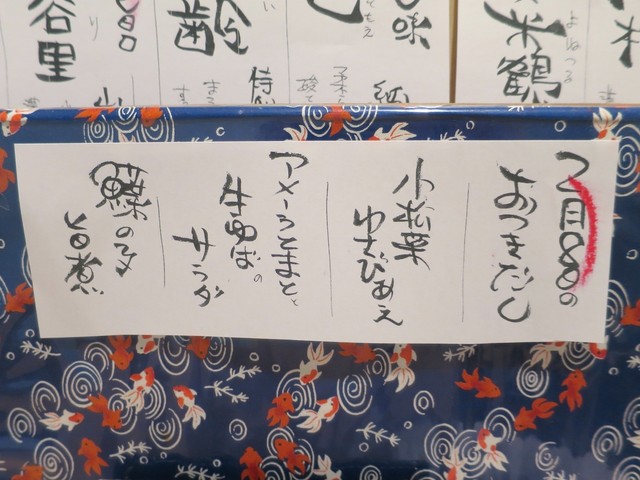 2月8日の
おつきだし
小松菜
わさびあえ
アメーラとまとと
生ゆばの
サラダ
鰈の子
旨煮
米鶴
よねつる